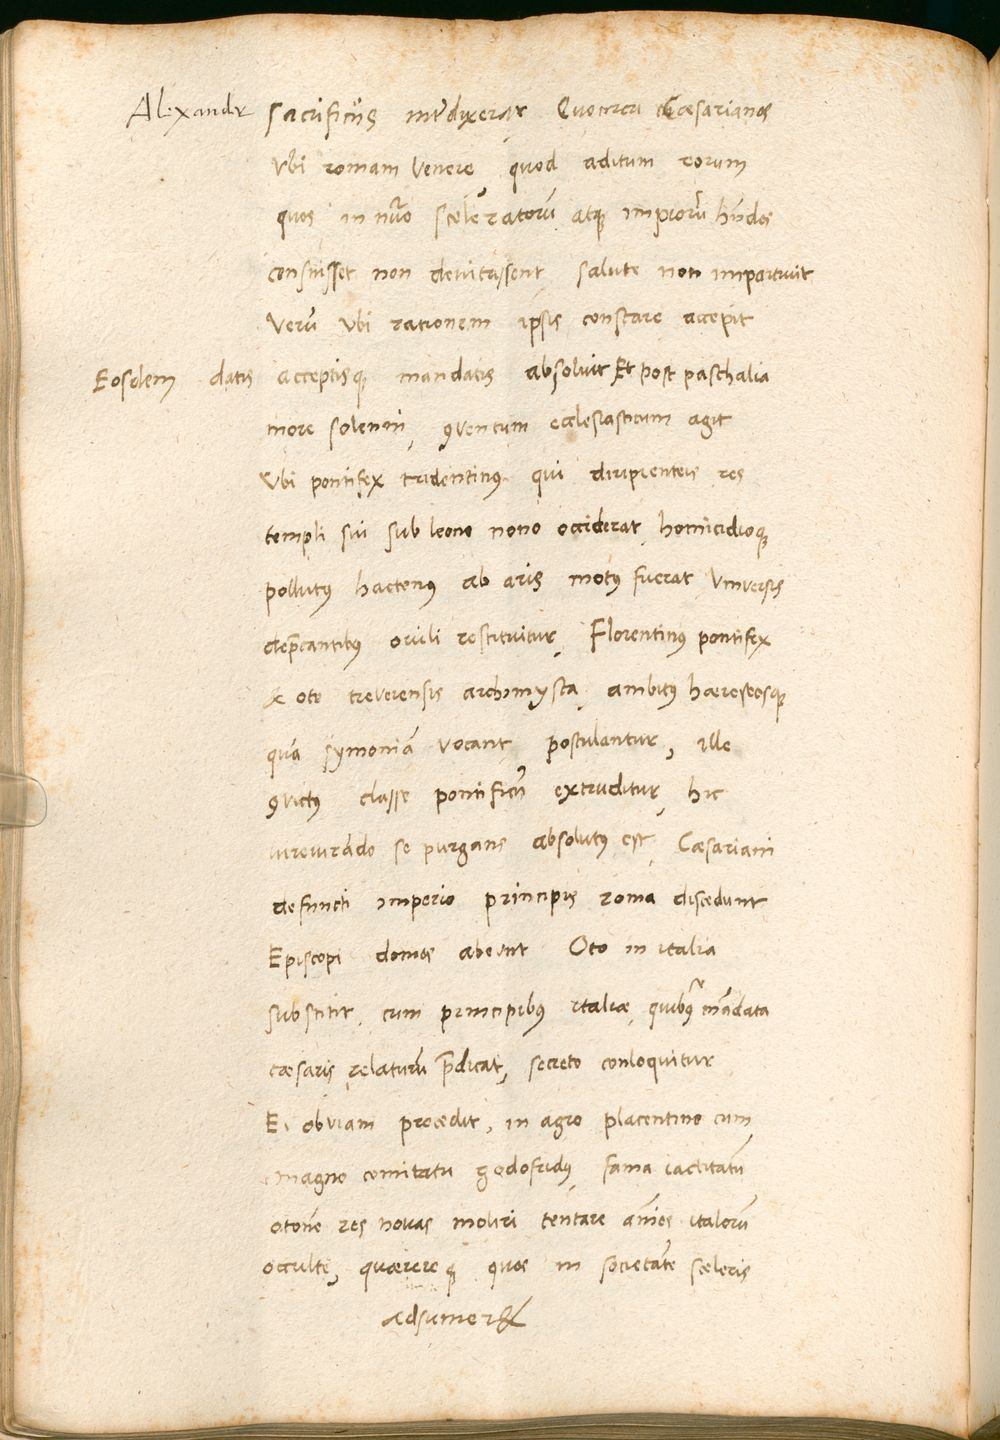 Alexander sacrificiis int͛dixerat Quocirca Cæsarianos
Vbi romam Venere quod aditum eorum
quos in nũo scelẽratorũ atq; impiorũ hñdos
censuisset non deuitassent salute non impartiuit
Verũ Vbi rationem ipsis constare accepit
Eosdem datis acceptisq; mandatis absoluit Et post paschalia
more solenni, ꝯVentum ecclesiasticum agit
Vbi pontifex tridentinꝰ qui diripienteis res
templi sui sub leone nono occiderat, homicidioq;
pollutꝰ hactenꝰ ab aris motꝰ fuerat Vniversis
dep̃cantibꝰ ouili restituitur, Florentinꝰ pontifex
& oto treverensis archimysta, ambitꝰ hæreseosq;
quã symoniã vocant, postulantur, ille
ꝯvictꝰ classe pontificũ extruditur, hic
iureiurãdo se purgans absolutꝰ est, Cæsariani
defuncti imperio principis roma discedunt
Episcopi domos abeunt Oto in italia
substitit, cum principibꝰ italiæ, quibꝰ mãdata
cæsaris relaturũ p̃dicat, secreto conloquitur
Ei obviam procedit, in agro placentino cum
magno comitatu godofridꝰ, fama iactitatũ
otonẽ res nouas moliri tentare aĩos italorũ
occulte, quærereq; quos in societatẽ sceleris
adsumeret